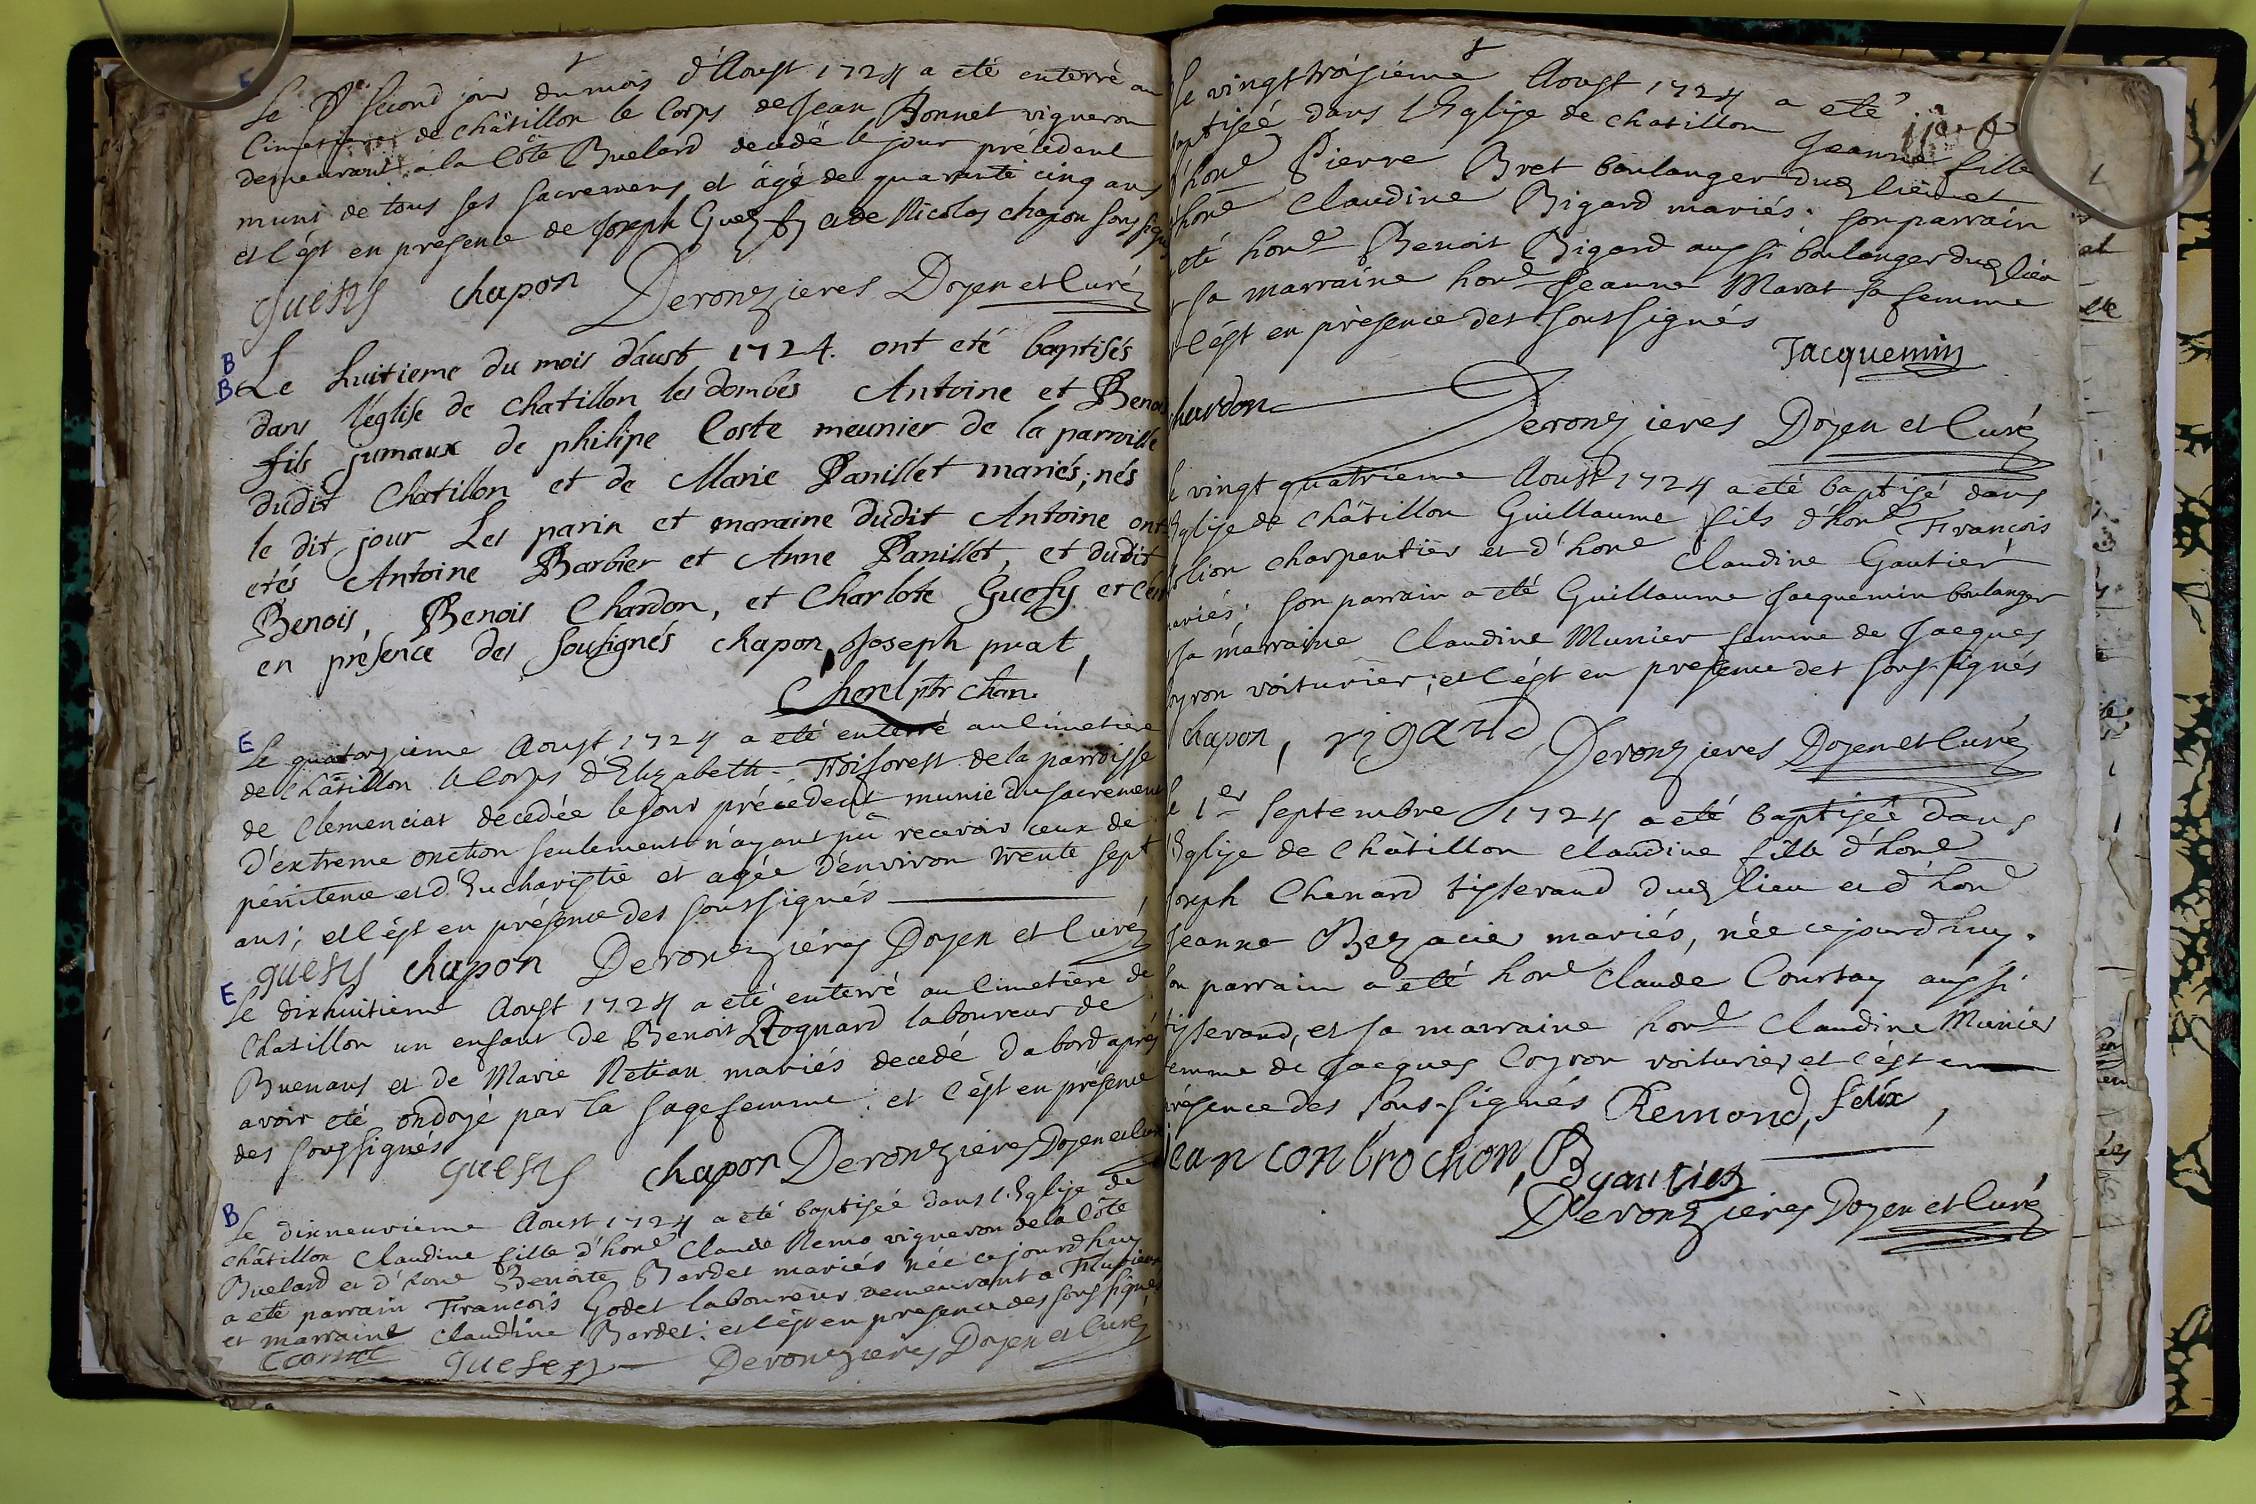 Le second jour du mois d'Aoust 1724 a eté enterré au
Cimetiere de Châtillon le Corps de Jean Bonnet vigneron
demeurant a la Côte Buelard decedé le jour précédent
muni de tous ses sacremens et âgé de quarante cinq ans
et c'est en presence de Joseph Guesfy et de Nicolas chapon sous signés
guesfy chapon Deronzieres Doyen et Curé
B
B Le huitieme du mois d'aust 1724. ont eté baptisés
dans l'église de chatillon les dombes Antoine et Benois
fils jumaux de philipe Coste meunier de la parroisse
dudit Chatillon et de Marie Panillet mariés; nés
le dit jour Les parin et maraine dudit Antoine ont
etés Antoine Barbier et Anne Panillet, et dudit
Benois, Benois Chardon, et Charlote Guesfy et c'est
en présence des sousignés chapon, Joseph prat,
Chorel ptr chan.
E Le quatorzieme Aoust 1724 a eté enterré au Cimetiere
de Châtillon le Corps d'Elizabeth Troiforest de la parroisse
de Clemenciat decedée le jour précedent munie du sacrement
d'extreme onction seulement n'ayant pû recevoir ceux de
pénitence et d'Eucharistie et agée d'environ trente sept
ans; et c'est en présence des soussignés
guesfy chapon Deronzieres Doyen et Curé
E Le dixhuitieme Aoust 1724 a eté enterré au Cimetiere de
Chatillon un enfant de Benoit Rognard laboureur de
Buenans et de Marie Netian mariés decedé d'abord aprés
avoir eté ondoyé par la sagefemme: et c'est en presence
des soussignés
guesfy chapon Deronzieres Doyen et Curé
B Le dixneuvieme Aoust 1724 a eté baptisée dans l'Eglise de
châtillon Claudine fille d'hone Claude Remo vigneron de la Côte
Buelard et d'hone Benoite Bardet mariés née ce jourd'huy
a eté parrain François Godet laboureur demeurant a
et marraine Claudine Bardet: et c'est en presence des soussignés
guesfy Deronzieres Doyen et Curé
Le vingt troisiéme Aoust 1724 a eté
baptisée dans l'Eglise de chatillon Jeanne fille
d'hone Pierre Bret boulanger dud lieu et
d'hone Claudine Bigard mariés. son parrain
a eté hone Benoit Bigard aussi boulanger dud lieu
et sa marraine hone Jeanne Marat sa femme
et c'est en présence des soussignés
Jacquemin
chardon Deronzieres Doyen et Curé
le vingt quatrieme Aoust 1724 a eté baptisé dans
l'Eglise de Châtillon Guillaume fils d'hone François
lion charpentier et d'hone Claudine Gautier
mariés; son parrain a eté Guillaume Jacquemin boulanger
sa marraine Claudine Munier femme de Jacques
Coyron voiturier; et c'est en presence des sous-signés
chapon, rigaud Deronzieres Doyen et Curé
le 1er Septembre 1724 a eté baptisée dans
l'Eglise de Châtillon claudine fille d'hone
Joseph Chenard tisserand dud lieu et d'hone
Jeanne Bezacier mariés, née ce jourd'huy.
son parrain a eté hone Claude Courtay aussi
tisserand, et sa marraine hone Claudine Munier
femme de Jacques Coyron voiturier et c'est en
présence des sous-signés Remond, felix,
jean conbrochon, B gautier
Deronzieres Doyen et Curé